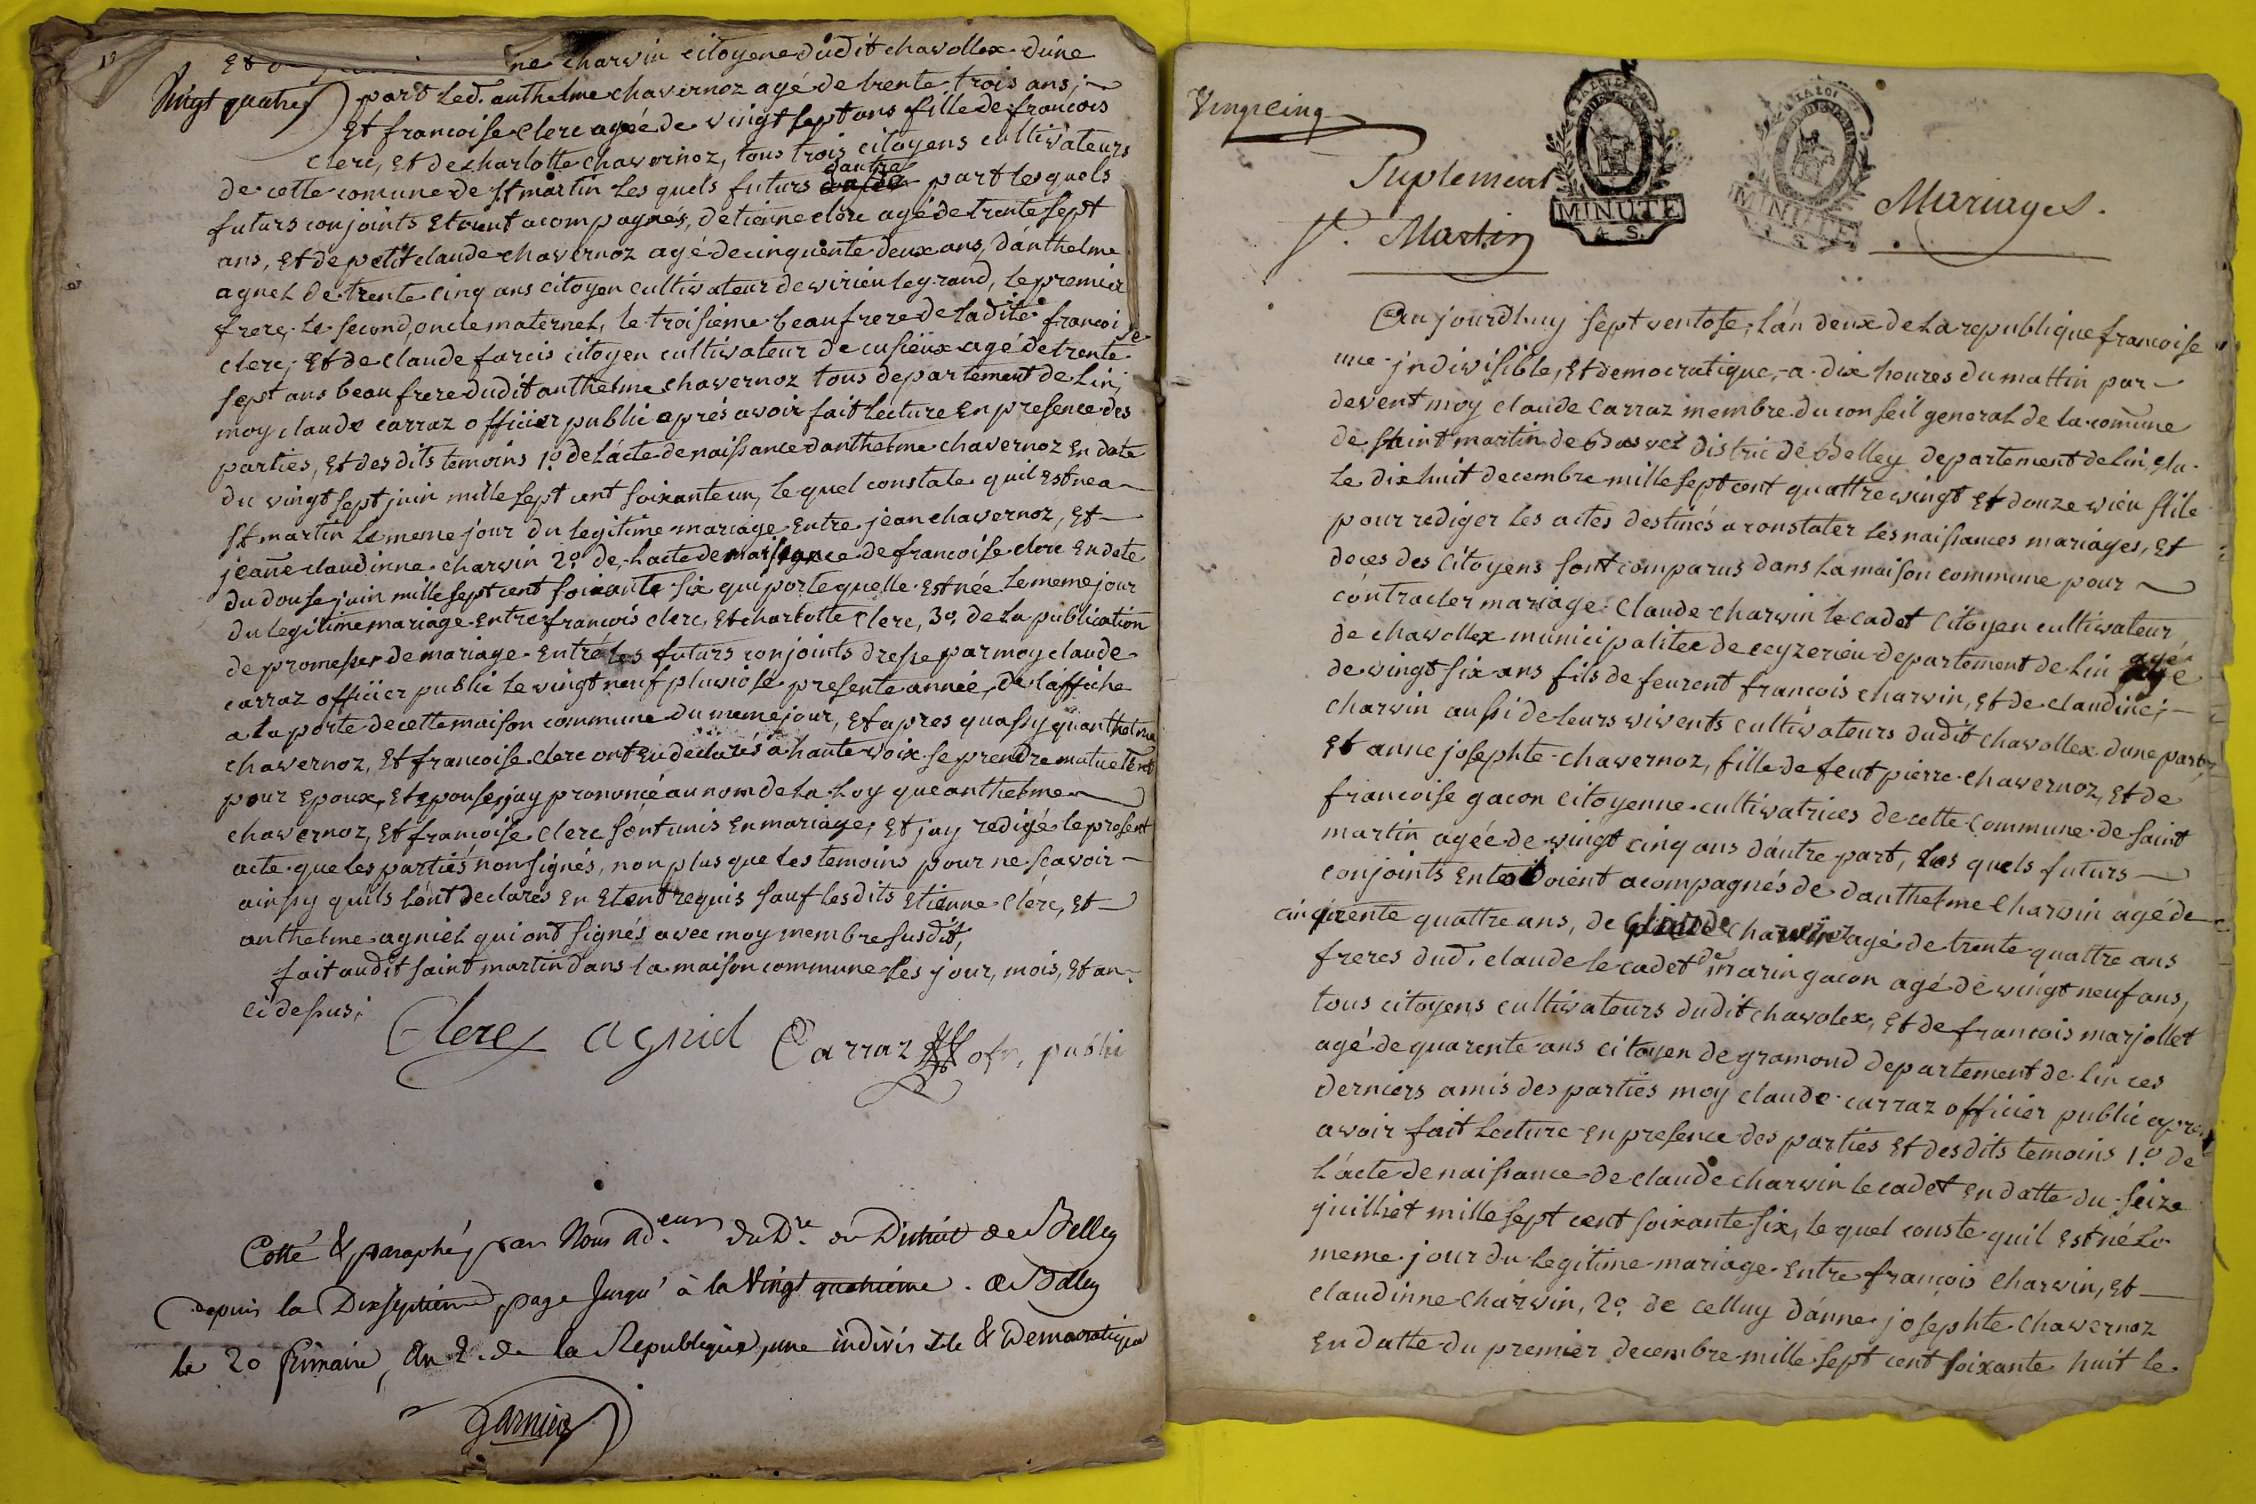 ne charvin citoyene dudit chavollex dúne
Vingt quatre
part led. anthelme chavernoz agé de trente trois ans,
Et francoise clerc agéé de vingt sept ans fille de francois
clerc, Et de charlotte chavernoz, tous trois citoyens cultivateurs
de cette comune de st martin les quels futurs dautre part les quels
futurs conjoints Etaunt acompagnés, detienne clerc agé de trente sept
ans, Et de petit claude chavernoz agé de cinquente deux ans, dánthelme
agnel de trente cinq ans citoyen cultivateur de virieu legrand, le premier
frere, le second, oncle maternel, le troisieme beau frere de ladite francoise
clerc, Et de claude farcis citoyen cultivateur de cusieux agé de trente
sept ans beau frere dudit anthelme chavernoz tous departement de lin,
moy claude carraz officier public aprés avoir fait lecture En presence des
parties, Et des dits temoins 1º de lácte de naissance danthelme chavernoz En date
du vingt sept juin mille sept cent soixante un, le quel constate quil Est né a
st martin le meme jour du legitime mariage Entre jean chavernoz, Et
jeanne claudinne charvin 2º de lacte de naissance de francoise clerc En date
du douse juin mille sept cent soixante six qui porte quelle Est née le meme jour
du legitime mariage Entre francois clerc, Et charlotte clerc, 3º. de la publication
de promesses de mariage Entré les futurs conjoints dresse par moy claude
carraz officier public le vingt neuf pluviose presente année, de láffiche
a la porte de cette maison commune du meme jour, Et apres quassy quanthelme
chavernoz, Et francoise clerc ont Eu declarés a haute voix se prendre mutuelent
pour Epoux, Et epouse, jay prononcé au nom de la Loy que anthelme
chavernoz, Et francoise clerc sont unis En mariage, Et jay redigé le present
acte que les partiés non signés, non plus que les temoins pour ne scavoir
ainsy quils lónt declarés En Etent requis sauf les dits Etienne clérc, Et
anthelme agniel qui ont signés avec moy membre susdit,
fait audit saint martin dans la maison commune les jour, mois, Et an
ci dessus,
Clerc agniel Carraz ofr, publi
Cotté & paraphé, par Nous ad.eur du D.re du District de Belley
depuis la Dixseptieme page Jusqu'à la Vingt quatrieme. a Belley
le 20 frimaire, an 2. de la Republique, une indivisible & Democratique
garnier
Vingt cinq
Suplement
St. Martin
MINUTE
4. S.
MINUTE
Mariages.
Au jourdhuy sept ventose, lán deux de la republique francoise
une indivisible, Et democratique, a dix heures du mattin par
devent moy claude Carraz membre du conseil general de la comune
de saint martin de Bavel distric de Belley departement de lin, elu
le dix huit decembre mille sept cent quattre vingt Et douze vieu stile
pour rediger les actes destinés a constater les naissances mariages, Et
deces des citoyens sont comparus dans la maison commune pour
contracter mariage claude charvin le cadet citoyen cultivateur
de chavollex municipalitee de ceyzerieu departement de lin agé
de vingt six ans fils de feurent francois charvin, Et de claudine
charvin aussi de leurs vivents cultivateurs dudit chavollex dune part,
Et anne josephte chavernoz, fille de feut pierre chavernoz, Et de
francoise gacon citoyenne cultivatrices de cette commune de saint
martin agée de vingt cinq ans dáutre part, les quels futurs
conjoints acompagnés de danthelme charvin agé de
cinqente quattre ans, de claude charvin agé de trente quattre ans
freres dud. claude le cadet de marin gacon agé de vingt neuf ans,
tous citoyens cultivateurs dudit chavolex, Et de francois marjollet
agé de quarente ans citoyen de gramond departement de lin ces
derniers amis des parties moy claude carraz officier public apres
avoir fait lecture En presence des parties Et des dits temoins 1.º de
lácte de naissance de claude charvin le cadet En datte du seize
juilliet mille sept cent soixante six, le quel conste quil Est né le
meme jour du legitime mariage Entre françois charvin, Et
claudinne charvin, 2º. de celluy dánne josephte chavernoz
En datte du premier decembre mille sept cent soixante huit le